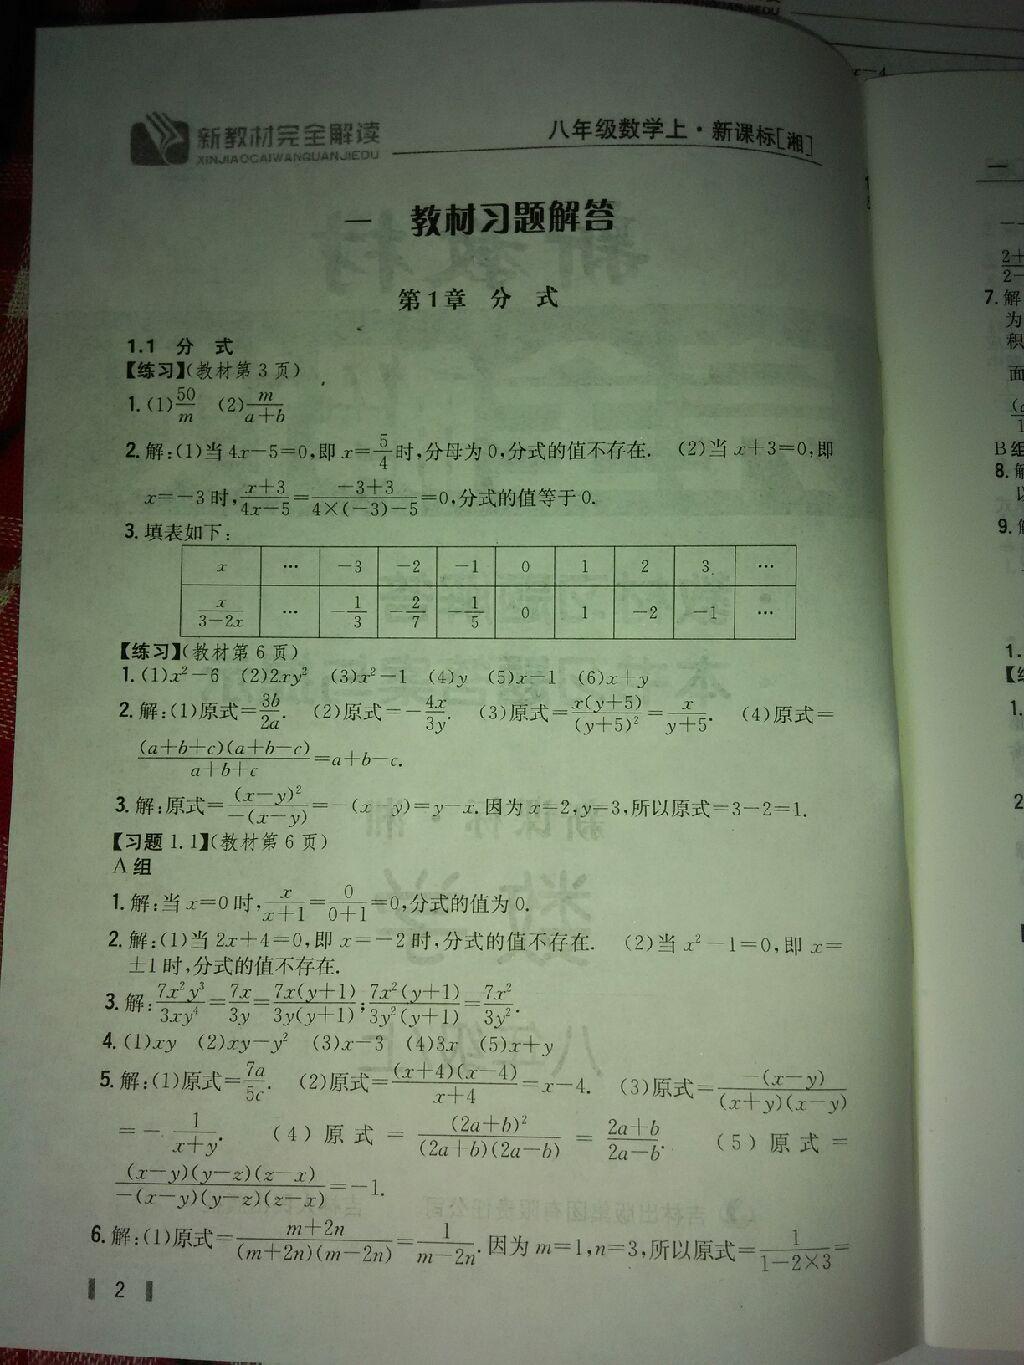 新教材完全解读
XINJIAOCAIWANQUANJIEDU
八年级数学上·新课标[湘]
一 教材习题解答
第1章 分 式
1.1 分 式
【练习】(教材第3页)
1.(1)50/m (2)m/(a+b)
2.解:(1)当4x-5=0,即x=5/4时,分母为0,分式的值不存在. (2)当x+3=0,即
x=-3时,(x+3)/(4x-5)=(-3+3)/(4×(-3)-5)=0,分式的值等于0.
3.填表如下:
x … -3 -2 -1 0 1 2 3 …
x/(3-2x) … -1/3 -2/7 -1/5 0 1 -2 -1 …
【练习】(教材第6页)
1.(1)x²-6 (2)2xy² (3)x²-1 (4)y (5)x-1 (6)x+y
2.解:(1)原式=3b/2a. (2)原式=-4x/3y. (3)原式=x(y+5)/(y+5)²=x/(y+5). (4)原式=
(a+b+c)(a+b-c)/(a+b+c)=a+b-c.
3.解:原式=(x-y)²/-(x-y)=-(x-y)=y-x.因为x=2,y=3,所以原式=3-2=1.
【习题1.1】(教材第6页)
A组
1.解:当x=0时,x/(x+1)=0/(0+1)=0,分式的值为0.
2.解:(1)当2x+4=0,即x=-2时,分式的值不存在. (2)当x²-1=0,即x=
±1时,分式的值不存在.
3.解:7x²y³/3xy⁴=7x/3y=7x(y+1)/3y(y+1);7x²(y+1)/3y²(y+1)=7x²/3y².
4.(1)xy (2)xy-y² (3)x-3 (4)3x (5)x+y
5.解:(1)原式=7a/5c. (2)原式=(x+4)(x-4)/(x+4)=x-4. (3)原式=-(x-y)/(x+y)(x-y)
=-1/(x+y). (4)原式=(2a+b)²/(2a+b)(2a-b)=(2a+b)/(2a-b). (5)原式=
(x-y)(y-z)(z-x)/-(x-y)(y-z)(z-x)=-1.
6.解:(1)原式=(m+2n)/(m+2n)(m-2n)=1/(m-2n).因为m=1,n=3,所以原式=1/(1-2×3)=
2
7.解
为
积
面
B组
8.解
9.解